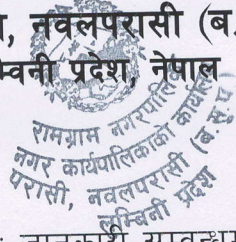 , नवलपरासी (ब.
म्बिनी प्रदेश, नेपाल
रामग्राम नगरपालिका
नगर कार्यपालिकाको कार्यालय
परासी, नवलपरासी (ब.सु.प
लुम्बिनी प्रदेश
जानकारी